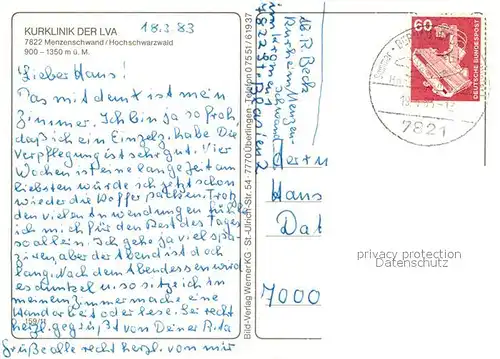 18.3.83
KURKLINIK DER LVA
7822 Menzenschwand / Hochschwarzwald
900 – 1350 m ü. M.
Lieber Hans!
Das mit dem t ist mein
Zimmer. Ich bin ja so froh,
daß ich ein Einzelz. habe. Die
Verpflegung ist sehr gut. Vier
Wochen ist eine lange Zeit am
liebsten würde ich jetzt schon
wieder die Koffer packen. Trotz
den vielen Anwendungen fühle
ich mich für den Rest des Tages
so allein. Ich gehe ja viel spa-
zieren aber der Abend ist doch
lang. Nach dem Abendessen wird
es dunkel u. so sitze ich in
meinem Zimmer mache eine
Handarbeit oder lese. Sei recht
herzl. gegrüßt von Deiner Rita
Grüße alle recht herzl. von mir
159/11
Bild-Verlag Werner KG St.-Ulrich-Str. 54 · 7770 Überlingen · Telefon 07551/61937
R. Beck
Kurheim/Menzen-
schwand
7822 St. Blasien 2
60
DEUTSCHE BUNDESPOST
7821
Herrn
Hans
Dat
7000
privacy protection
Datenschutz